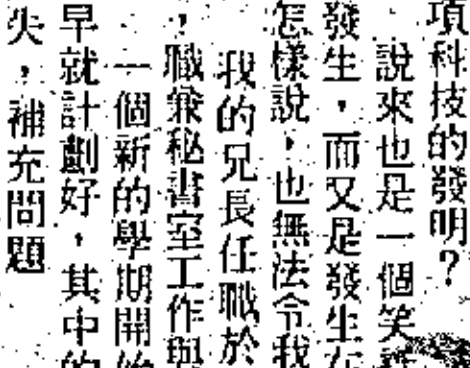 項科技的發明？
說來也是一個笑
發生，而又是發生在
怎樣說，也無法令我
我的兄長任職於
，職兼秘書室工作與
一個新的學期開始
早就計劃好，其中的
失，補充問題